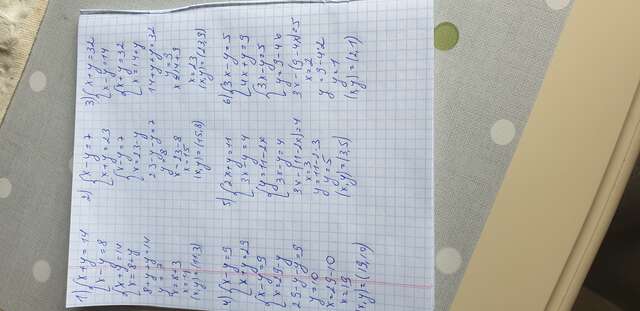 1) { x + y = 14
x - y = 8
{ x + y = 14
x = 8 + y
8 + y + y = 14
y = 3
x = 8 + 3
x = 11
(x, y) = (11, 3)
2) { x - y = 7
x + y = 23
{ x - y = 7
x = 23 - y
23 - y - y = 7
y = 8
x = 23 - 8
x = 15
(x, y) = (15, 8)
3) { x + y = 32
x - y = 14
{ x + y = 32
x = 14 + y
14 + y + y = 32
y = 9
x = 14 + 9
x = 23
(x, y) = (23, 9)
4) { x - y = 9
x + y = 29
{ x - y = 9
x = 29 - y
29 - y - y = 9
y = 10
x = 29 - 10
x = 19
(x, y) = (19, 10)
5) { 2x + y = 11
3x - y = 4
{ y = 11 - 2x
3x - y = 4
3x - (11 - 2x) = 4
x = 3
y = 11 - 2 · 3
y = 5
(x, y) = (3, 5)
6) { 3x - y = 5
4x + y = 9
{ 3x - y = 5
3x - (9 - 4x) = 5
y = 1
(x, y) = (2, 1)